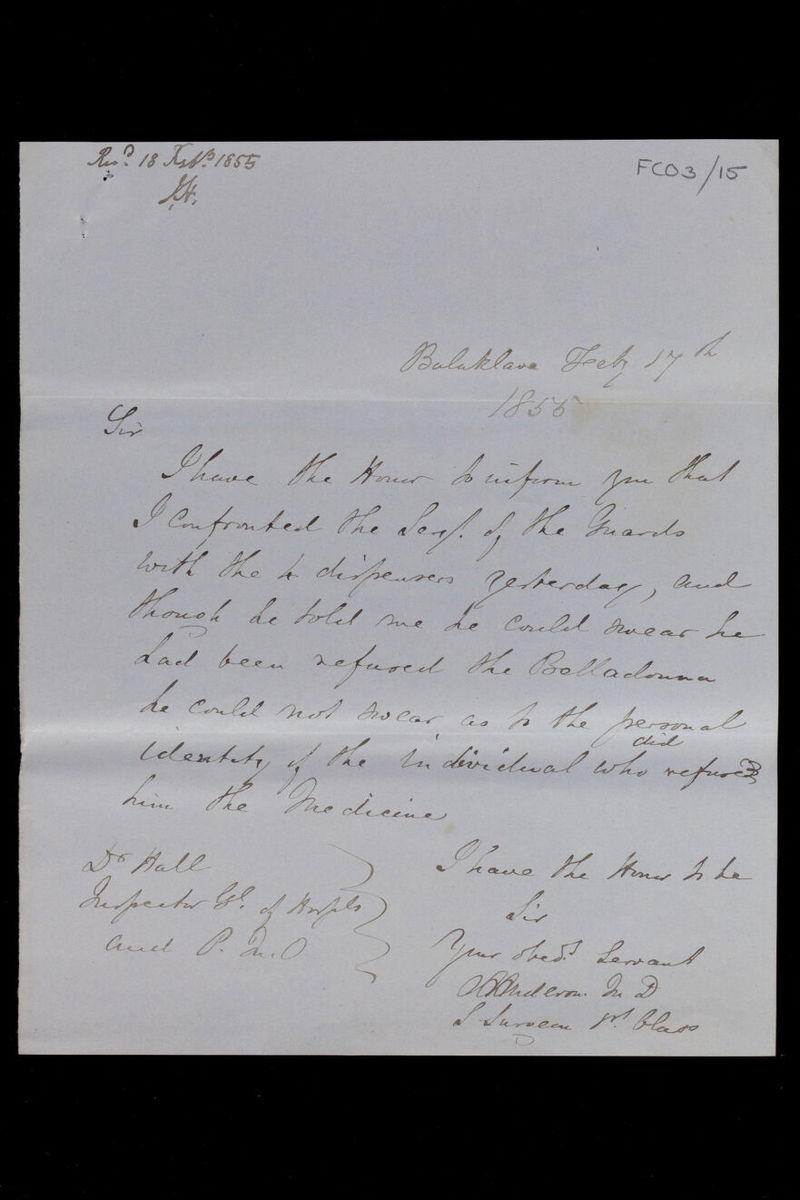 Recd. 18 Feby. 1855
J.H.
FCO3/15
Balaklava Feby 17th
1855
Sir
I have the Honor to inform you that
I confronted the Sergt. of the Guards
with the 4 dispensers yesterday, and
though he told me he could swear he
had been refused the Belladonna
he could not swear as to the personal
did
identity of the individual who refused
him the Medicine
I have the Honor to be
Sir
Your obedt. Servant
Anderson M D
S Surgeon 1st. Class
Dr Hall
Inspector Gl. of Hospls
and P. M. O